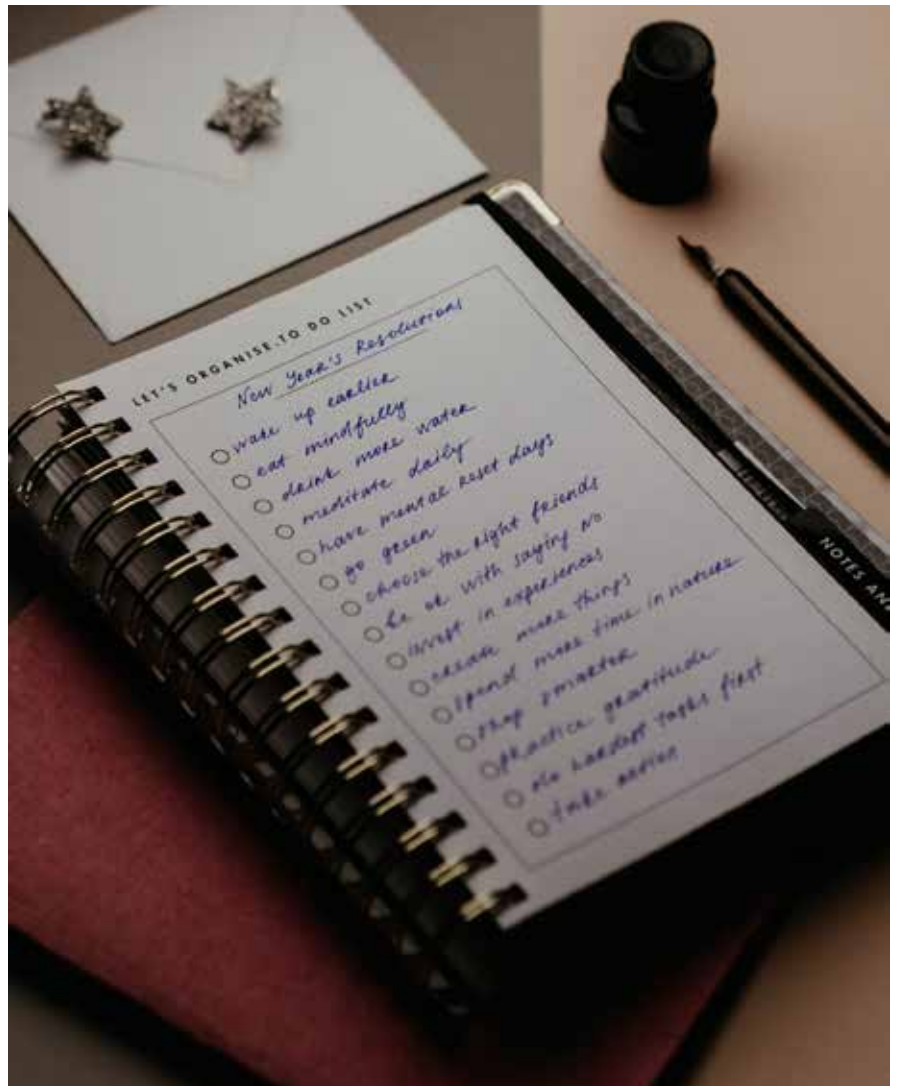 LET'S ORGANISE.TO DO LIST
New Year's Resolutions
wake up earlier
eat mindfully
drink more water
meditate daily
have mental reset days
go green
choose the right friends
be ok with saying no
invest in experiences
create more things
spend more time in nature
shop smarter
practice gratitude
do hardest tasks first
take action
NOTES AND